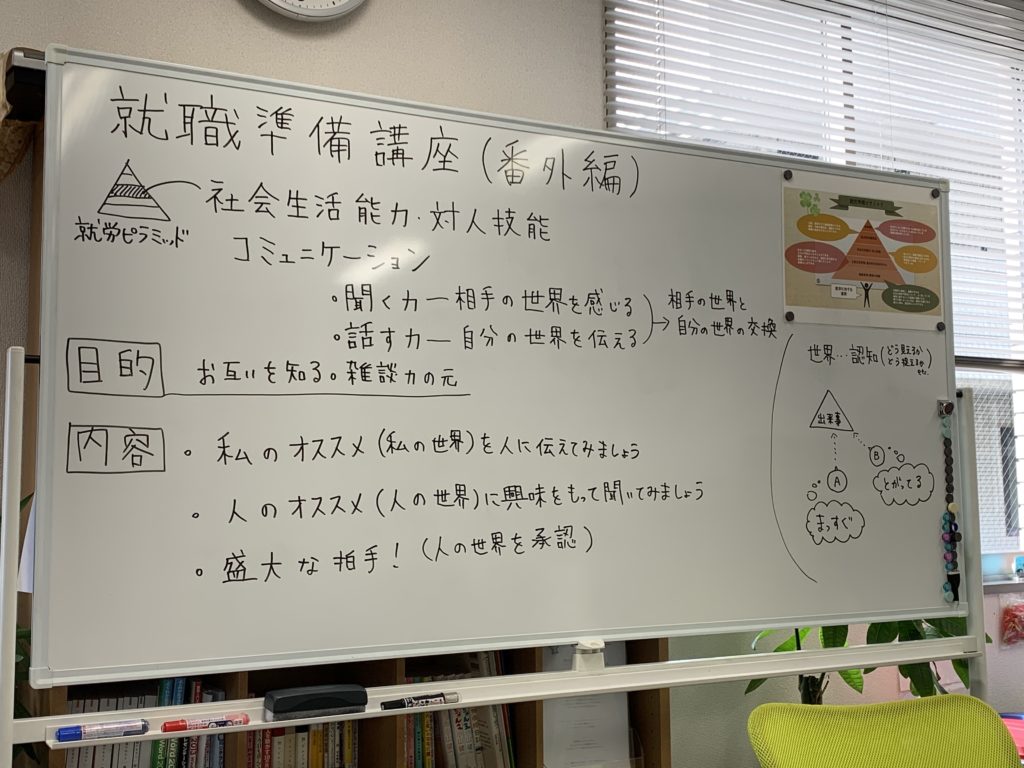 就職準備講座(番外編)
社会生活能力・対人技能
就労ピラミッド
コミュニケーション
・聞く力ー相手の世界を感じる
・話す力ー自分の世界を伝える
→相手の世界と
自分の世界の交換
目的
お互いを知る。雑談力の元
内容
・私のオススメ(私の世界)を人に伝えてみましょう
・人のオススメ(人の世界)に興味をもって聞いてみましょう
・盛大な拍手!(人の世界を承認)
世界…認知(どう見えるか
どう捉えるか
etc.)
出来事
B
A
とがってる
まっすぐ